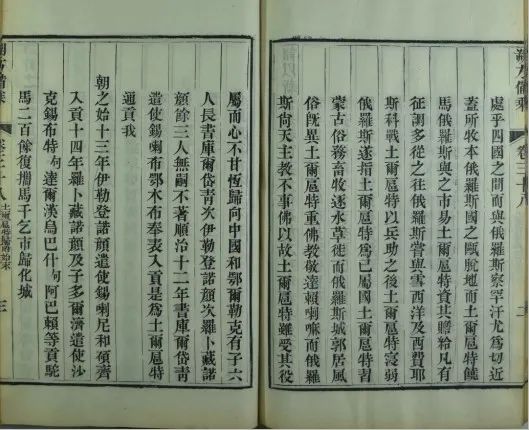 朔方備乘
卷三十八
處乎四國之間而與俄羅斯察罕汗尤為切近
蓋所牧本俄羅斯國之甌脫壖地而土爾扈特
馬俄羅斯與之市易土爾扈特資其贈給凡有
征調多從之往俄羅斯嘗與雪西洋及西費耶
斯科戰土爾扈特以兵助之後土爾扈特寖弱
俄羅斯遂指土爾扈特為己屬國土爾扈特習
蒙古俗務畜牧逐水草徙而俄羅斯城郭居風
俗旣異土爾扈特重佛教敬達賴喇嘛而俄羅
斯尚天主教不事佛以故土爾扈特雖受其役
屬而心不甘恆歸向中國和鄂爾勒克有子六
人長書庫爾岱青次伊勒登諾顏次羅卜藏諾
顏餘三人無嗣不著順治十二年書庫爾岱青
遣使錫喇布鄂木布奉表入貢是為土爾扈特
通貢我
朝之始十三年伊勒登諾顏遣使錫喇尼和碩齊
入貢十四年羅卜藏諾顏及子多爾濟遣使沙
克錫布特達爾漢烏巴什阿巴賴等貢駝
馬二百餘復攜馬千乞市歸化城
朔方備乘
卷三十八
土爾扈特歸附始末
三